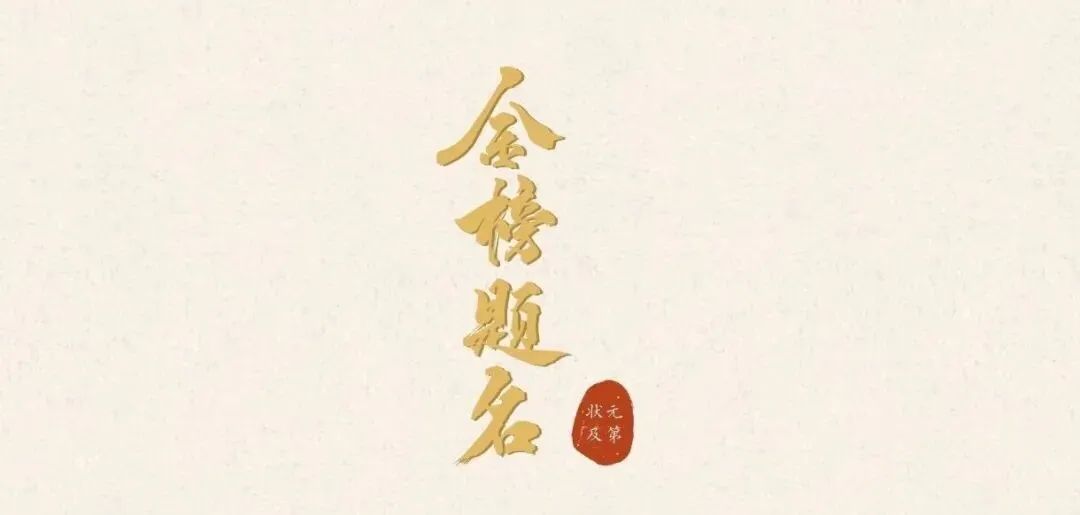 金榜题名
状元
及第